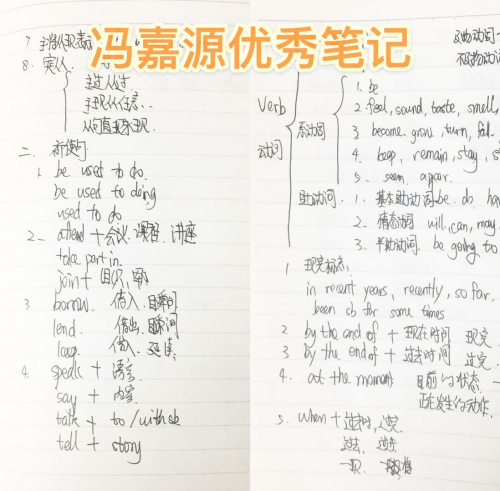 冯嘉源优秀笔记
7 主将从现
8.
主过从过
主现从任意
从句真理永现
二、
1. be used to do.
be used to doing
used to do
2. attend + 会议. 课程. 讲座
take part in.
join + 组织,
3 borrow. 借入.
lend. 借出.
借入.
4. speak + 语言.
say + 内容.
talk + to / with sb
tell + story
Verb
动词
系动词
1. be
2. feel, sound, taste, smell,
3 become. grow, turn, fall.
4. keep, remain, stay,
5. seem. appear.
助动词. 1. 基本助动词. be. do. have
2. 情态动词 will, can, may.
3. 半助动词. be going to
1 现完标志.
in recent years, recently, so far.
been for some times
2 by the end of + 现在时间 现完
3 by the end of + 过去时间 过完.
4. at the moment 目前的状态
正在发生的动作.
5. when + 过去时,